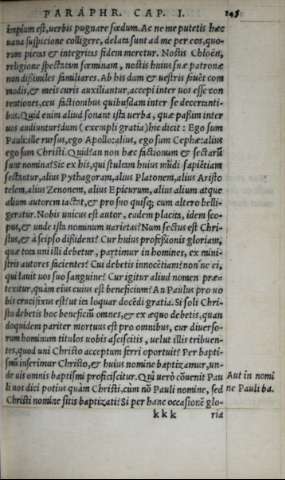 PARAPHR. CAP. I.
impium est, uerbis pugnare fœdum. Ac ne me putetis hæc
uana suspicione colligere, delata sunt ad me per eos, quo-
rum pietas & integritas fidem meretur. Nostis Chloën,
religione spectatam fœminam, nostis huius suæ patronæ
non dissimiles familiares. Ab his dum & uestris fauēt com
modis, & meis curis auxiliantur, accepi inter uos esse con
tentiones, ceu factionibus quibusdam inter se decertanti-
bus. Quid enim aliud sonant ista uerba, quæ passim inter
uos audiuntur: dum (exempli gratia) hic dicit: Ego sum
Pauli: ille rursus, ego Apollo: alius, ego sum Cephæ: alius
ego sum Christi. Quid? an non hæc factionum & sectarū
sunt nomina? Sic ex his, qui stultam huius mūdi sapiētiam
sectantur, alius Pythagoram, alius Platonem, alius Aristo
telem, alius Zenonem, alius Epicurum, alius alium atque
alium autorem iactat, & pro suo quisq; cum altero belli-
geratur. Nobis unicus est autor, eadem placita, idem sco-
pus, & unde ista nominum uarietas? Num sectus est Chri-
stus, & à seipso dissidens? Cur huius professionis gloriam,
quæ tota uni illi debetur, partimur in homines, ex mini-
stris autores facientes? Cui debetis innocētiam? non'ne ei,
qui lauit uos suo sanguine? Cur igitur aliud nomen præ-
texitur, quàm eius cuius est beneficium? An Paulus pro uo
bis crucifixus est? ut in loquar docēdi gratia. Si soli Chri-
sto debetis hoc beneficiū omnes, & ex æquo debetis, quan
doquidem pariter mortuus est pro omnibus, cur diuerso-
rum hominum titulos uobis asciscitis, uelut illis tribuen-
tes, quod uni Christo acceptum ferri oportuit? Per bapti-
smū inserimur Christo, & huius nomine baptizamur, un-
de uis omnis baptismi proficiscitur. Quî uerò cōuenit Pau
li uos dici potius quàm Christi, cùm nō Pauli nomine, sed
Christi nomine sitis baptizati? Si per hanc occasionē glo-
Aut in nomi
ne Pauli ba.
kkk ria